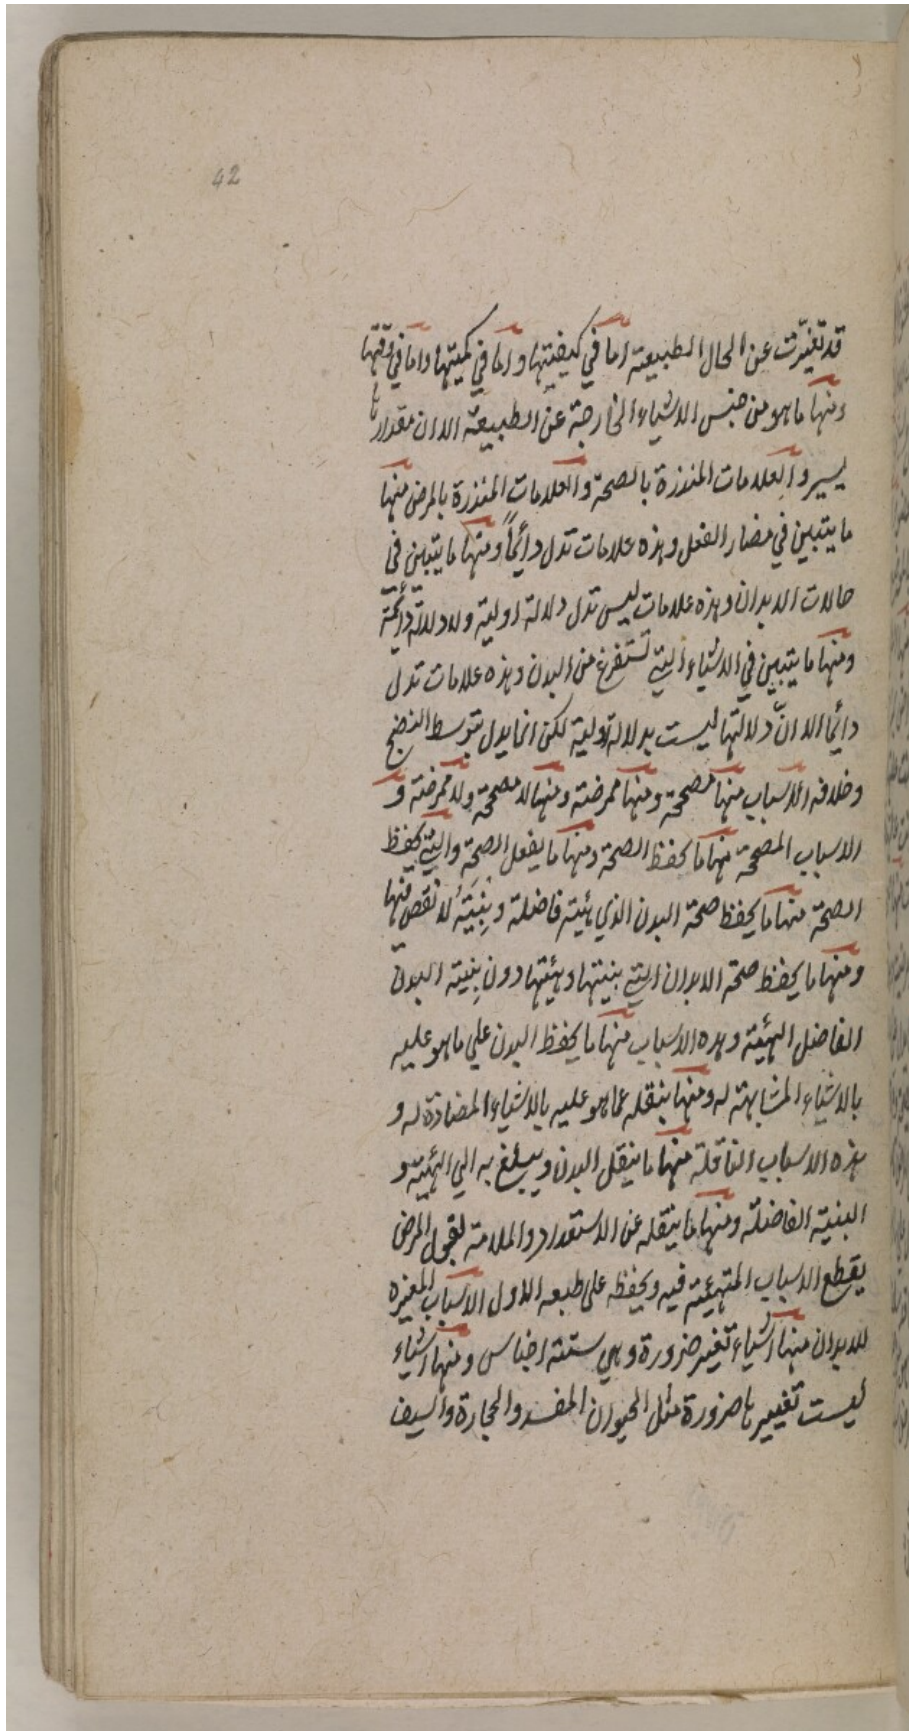 42
قد تغيّرت عن الحال الطبيعية اما في كيفيتها واما في كميتها واما في وقتها
ومنها ما هو من جنس الاشياء الخارجة عن الطبيعة الا ان مقدارها
يسير والعلامات المنذرة بالصحة والعلامات المنذرة بالمرض منها
ما يتبين في مضار الفعل وهذه علامات تدل دائماً ومنها ما يتبين في
حالات الابدان وهذه علامات ليس تدل دلالة اولية ولا دلالة دائمة
ومنها ما يتبين في الاشياء التي تستفرغ من البدن وهذه علامات تدل
دائما الا انّ دلالتها ليست بدلالة اولية لكن انما يدل بتوسط النضج
وخلافه الاسباب منها مصححة ومنها ممرضة ومنها لا مصححة ولا ممرضة و
الاسباب المصححة منها ما يحفظ الصحة ومنها ما يفعل الصحة والتي يحفظ
الصحة منها ما يحفظ صحة البدن الذي هيئته فاضلة وبِنيَتهُ لا نقص منها
ومنها ما يحفظ صحة الابدان التي بنيتها وهيئتها دون بِنية البدن
الفاضل الهيئة وهذه الاسباب منها ما يحفظ البدن علي ما هو عليه
بالاشياء المشابهة له ومنها ينقله عما هو عليه بالاشياء المضادة له و
هذه الاسباب الناقلة منها ما ينقل البدن ويبلغ به الي الهيئة و
البنية الفاضلة ومنها ما ينقله عن الاستعداد والملامة لقبول المرض
يقطع الاسباب المتهيئة فيه ويحفظه على طبعه الاول الاسباب المغيره
للابدان منها اشياء تغير ضرورة وهي ستة اجناس ومنها اشياء
ليست تغييرها ضرورة مثل الحيوان المفسد والحجارة والسيف